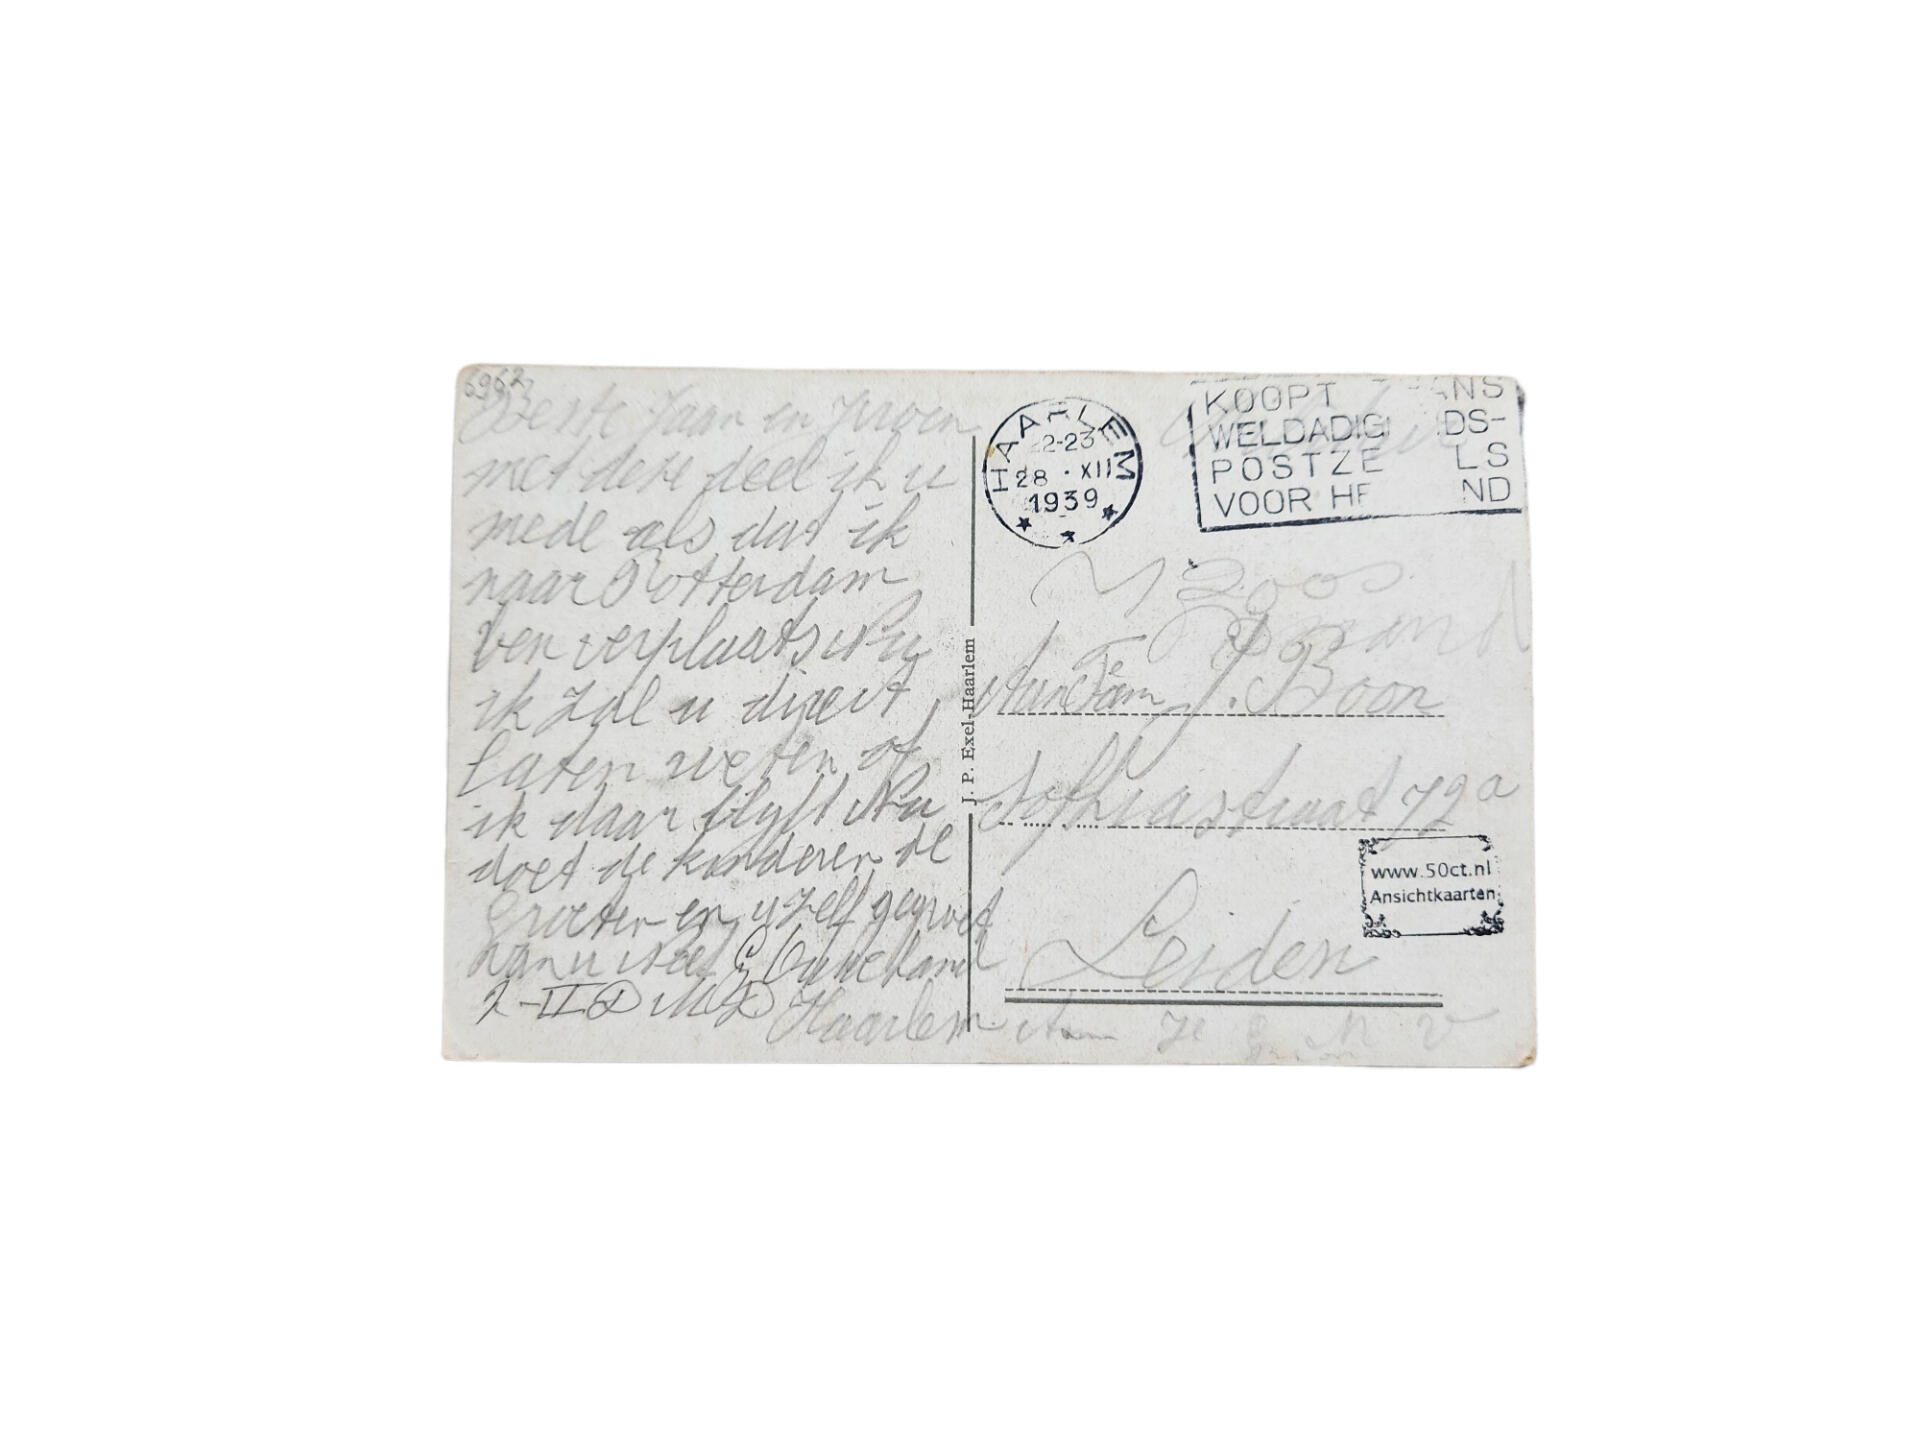 6962
Beste Jaan en Kroon
met dese deel ik u
mede als dat ik
naar Rotterdam
ben verplaats Nu
ik zal u direct
laten weten of
ik daar blyft Nu
doet de kinderen de
Groeten en u zelf gegroet
van u Neef G Ouweland
2-II D M D Haarlem
J. P. Exel-Haarlem
HAARLEM
22-23
28 · XII
1939
KOOPT ANS
WELDADIGI DS-
POSTZE LS
VOOR HE ND
Aan Fam J. Boon
Sofhiastraat 72a
Leiden
www.50ct.nl
Ansichtkaarten